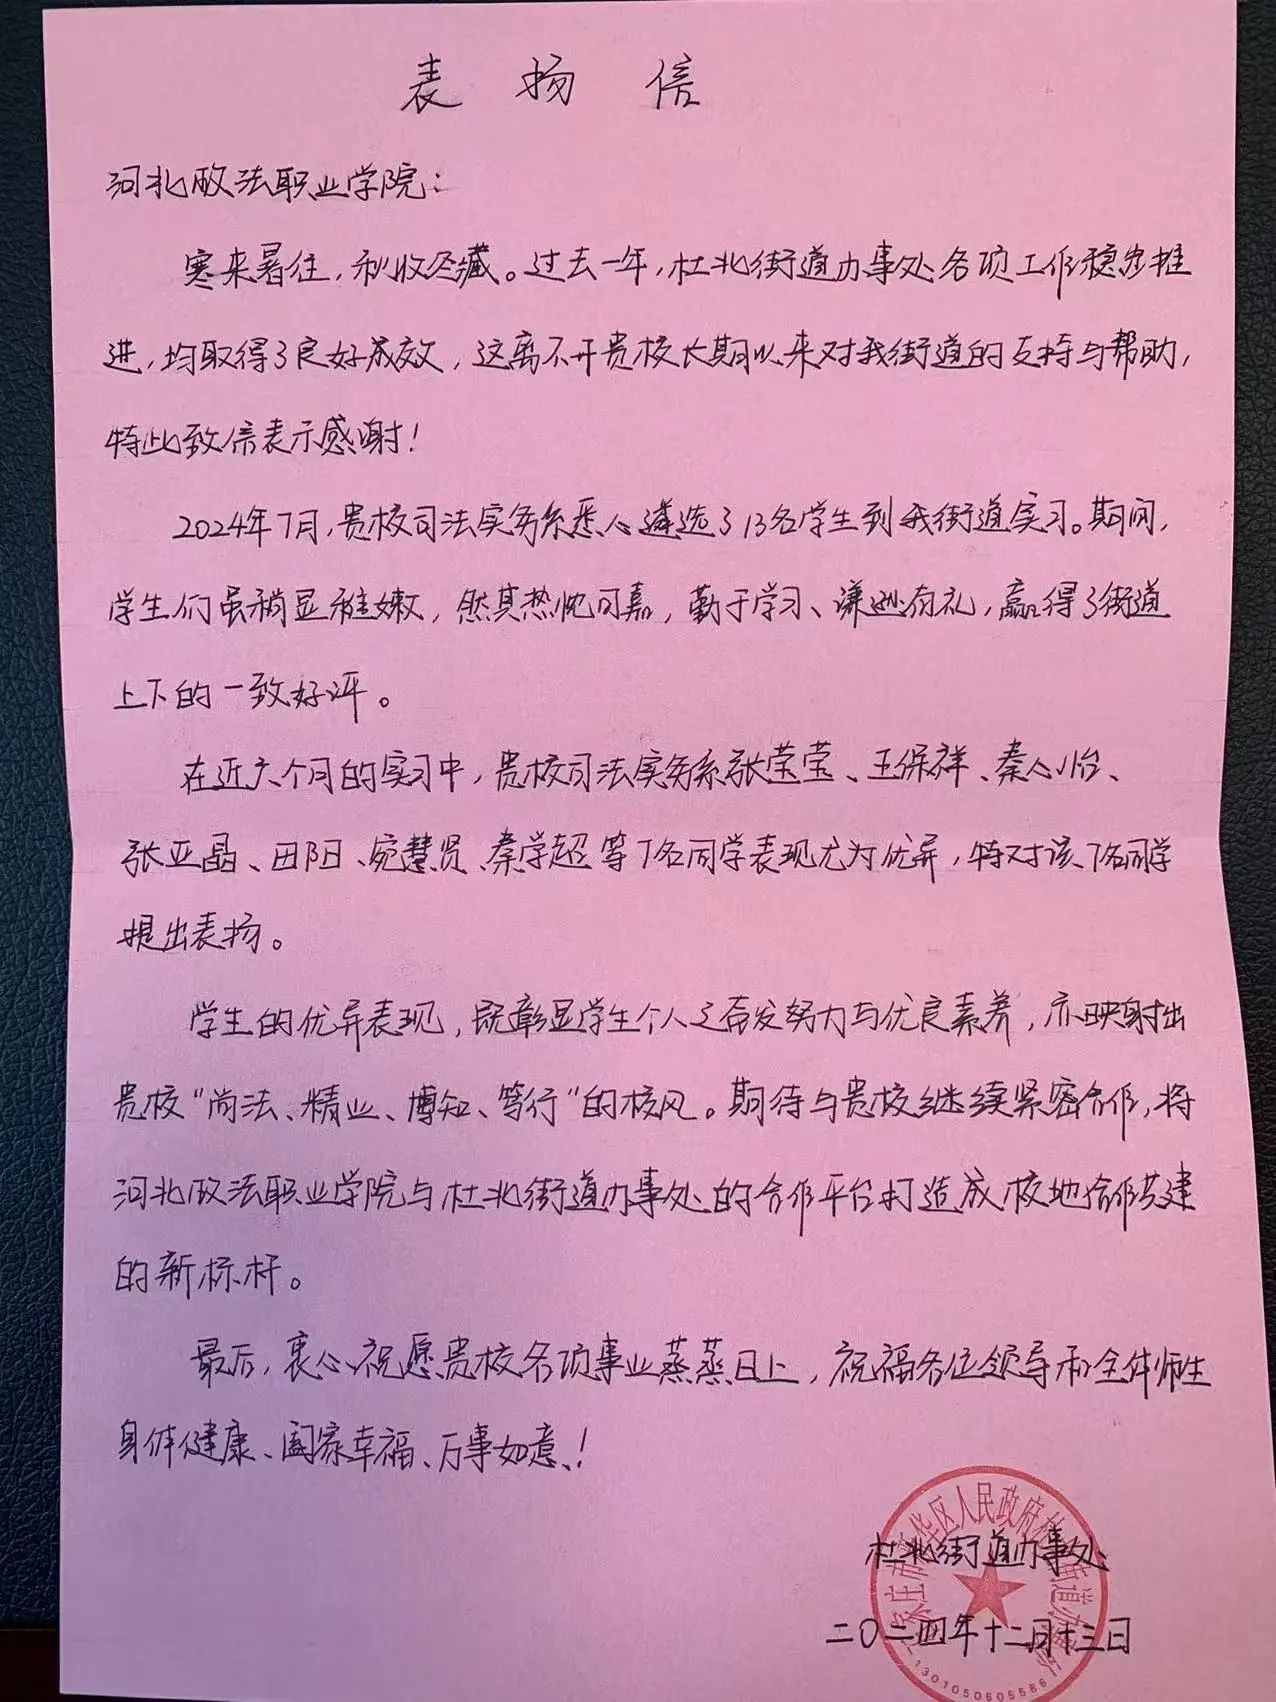 表扬信
河北政法职业学院:
寒来暑往,秋收冬藏。过去一年,杜北街道办事处各项工作稳步推
进,均取得了良好成效,这离不开贵校长期以来对我街道的支持与帮助,
特此致信表示感谢!
2024年7月,贵校司法实务系悉心遴选了13名学生到我街道实习。期间,
学生们虽稍显稚嫩,然其热忱可嘉,勤于学习、谦逊有礼,赢得了街道
上下的一致好评。
在近六个月的实习中,贵校司法实务系张莹莹、王保祥、秦心怡、
张亚晶、田阳、宛慧贤、秦学超等7名同学表现尤为优异,特对该7名同学
提出表扬。
学生的优异表现,既彰显学生个人之奋发努力与优良素养,亦映射出
贵校“尚法、精业、博知、笃行”的校风。期待与贵校继续紧密合作,将
河北政法职业学院与杜北街道办事处的合作平台打造成校地合作共建
的新标杆。
最后,衷心祝愿贵校各项事业蒸蒸日上,祝福各位领导和全体师生
身体健康、阖家幸福、万事如意!
杜北街道办事处
二〇二四年十二月十三日
家庄市新华区人民政府杜北街道办事处
1301050605566